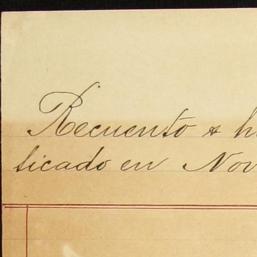 Recuento & h
ticado en Nov